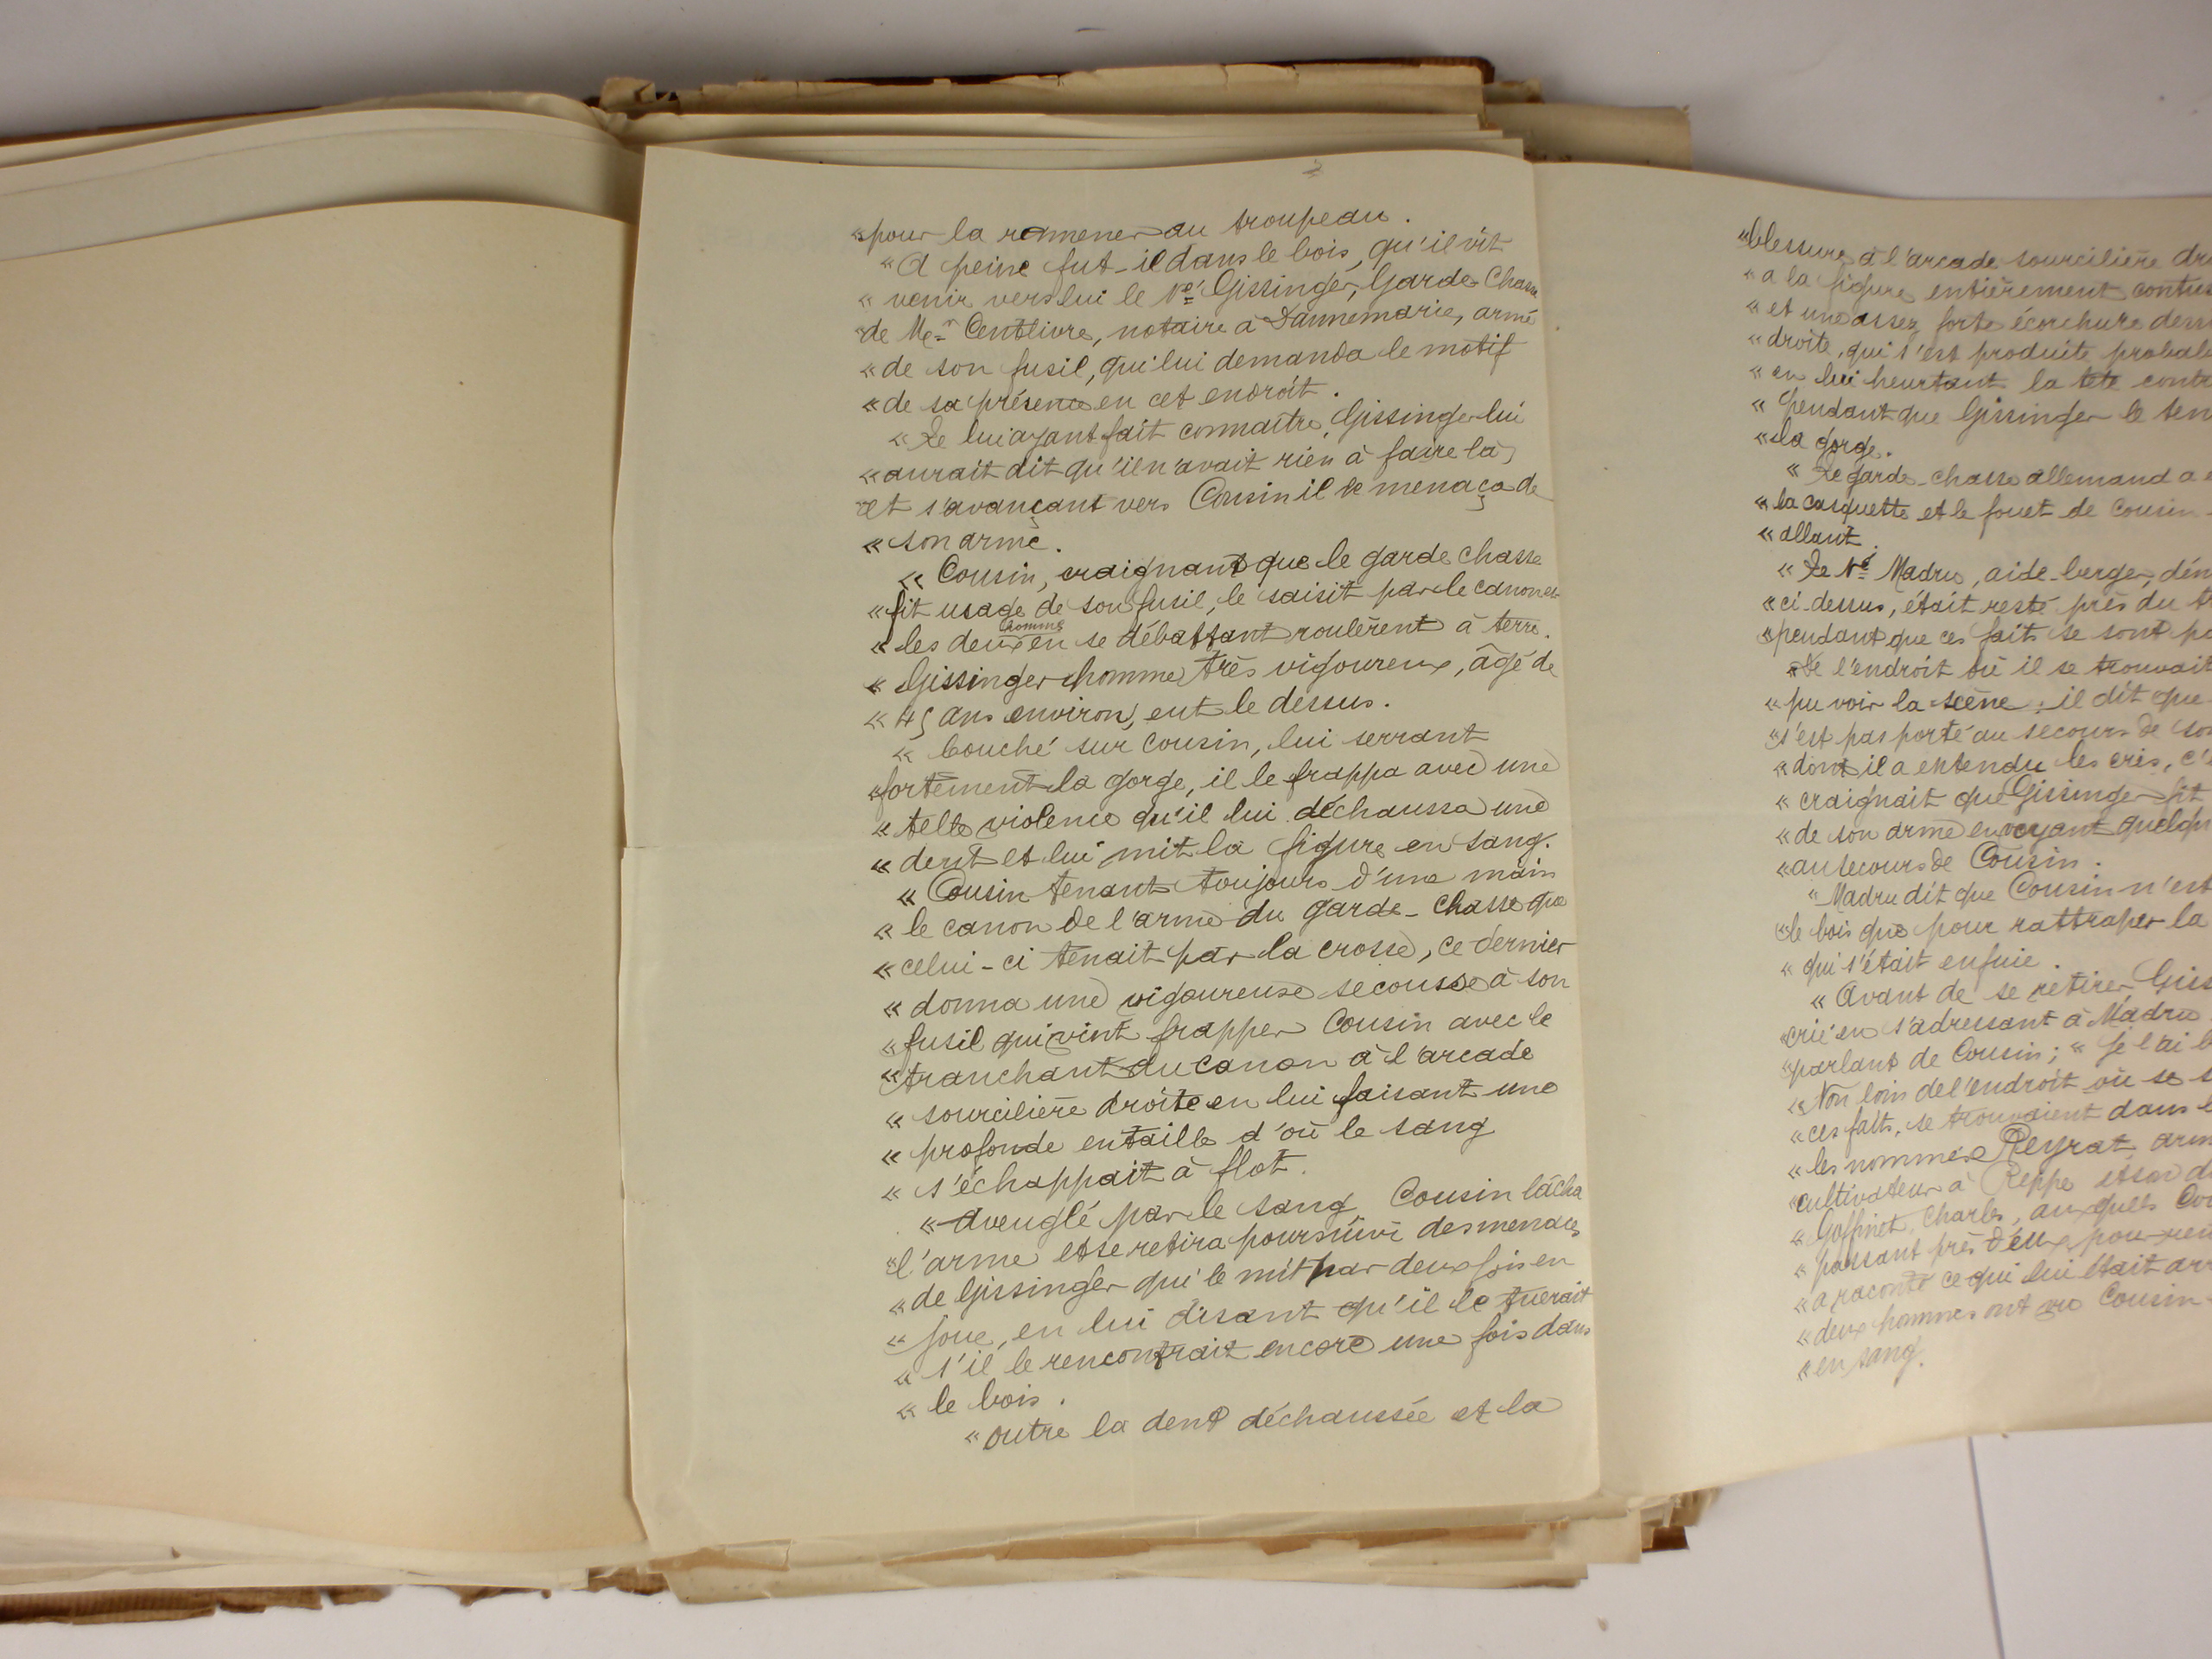 « pour la ramener au troupeau.
« A peine fut-il dans le bois, qu'il vit
« venir vers lui le Né Gissinger, Garde Chasse
« de Me Centlivre, notaire à Dannemarie, armé
« de son fusil, qui lui demanda le motif
« de sa présence en cet endroit.
« Le lui ayant fait connaître, Gissinger lui
« aurait dit qu'il n'avait rien à faire là,
« et s'avançant vers Cousin il le menaça de
« son arme.
« Cousin, craignant que le garde chasse
« fit usage de son fusil, le saisit par le canon et
« les deux hommes en se débattant roulèrent à terre.
« Gissinger homme très vigoureux, âgé de
« 45 ans environ, eut le dessus.
« Couché sur Cousin, lui serrant
« fortement la gorge, il le frappa avec une
« telle violence qu'il lui déchaussa une
« dent et lui mit la figure en sang.
« Cousin tenant toujours d'une main
« le canon de l'arme du garde-chasse que
« celui-ci tenait par la crosse, ce dernier
« donna une vigoureuse secousse à son
« fusil qui vint frapper Cousin avec le
« tranchant du canon à l'arcade
« sourcilière droite en lui faisant une
« profonde entaille d'où le sang
« s'échappait à flot.
« Aveuglé par le sang, Cousin lâcha
« l'arme et se retira poursuivi des menaces
« de Gissinger qui le mit par deux fois en
« joue, en lui disant qu'il le tuerait
« s'il le rencontrait encore une fois dans
« le bois.
« Outre la dent déchaussée et la
« blessure à l'arcade sourcilière
« a la figure entièrement
« et une assez forte écorchure
« droite, qui s'est produite
« en lui heurtant la tête
« pendant que Gissinger le
« la gorge.
« Le garde-chasse allemand a
« la casquette et le fouet de Cousin
« allant.
« Le Né Madru, aide-berger,
« ci-dessus, était resté près du
« pendant que ces faits se sont
« De l'endroit où il se trouvait
« pu voir la scène; il dit que
« s'est pas porté au secours de
« dont il a entendu les cris,
« craignait que Gissinger fit
« de son arme en voyant
« au secours de Cousin.
« Madru dit que Cousin n'est
« le bois que pour rattraper la
« qui s'était enfuie.
« Avant de se retirer,
« crié en s'adressant à Madru
« parlant de Cousin; « Je l'ai
« Non loin de l'endroit où se
« ces faits, se trouvaient dans
« les nommés Reyrat
« cultivateur à Reppe et son
« Goffinet, Charles, auxquels
« passant près d'eux pour
« a raconté ce qui lui était
« deux hommes ont vu Cousin
« en sang.